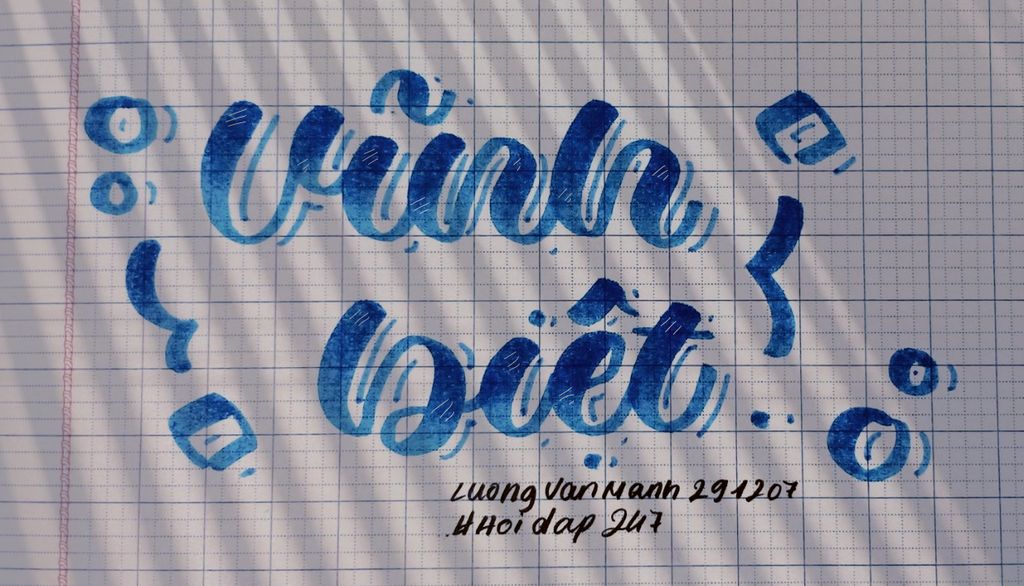 vĩnh
biệt
LuongVanManh 291207
#Hoidap 247